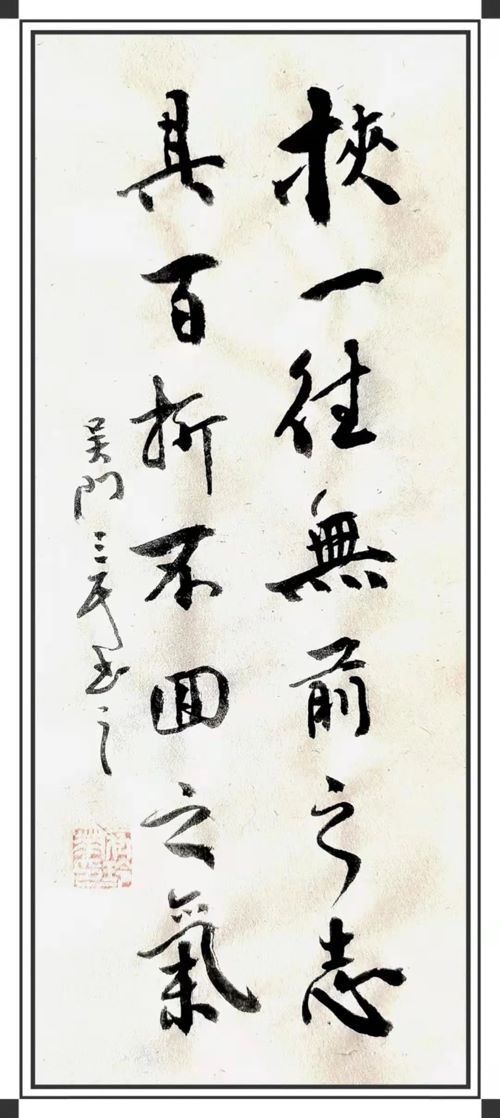 挾一往無前之志
具百折不回之氣
吴門三民书之